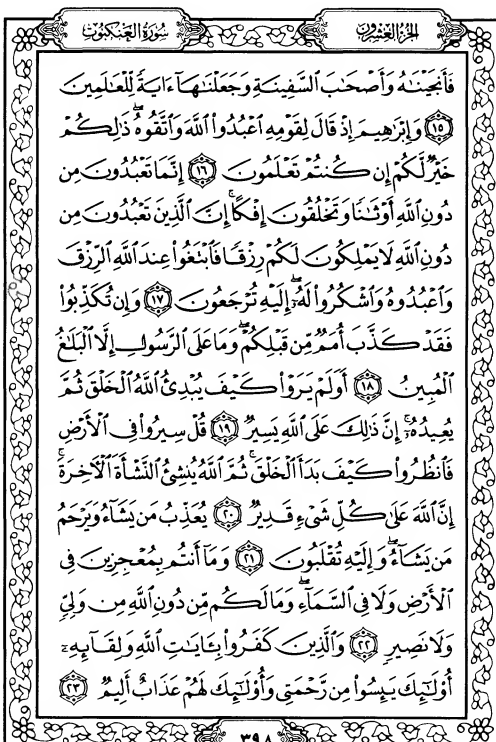 الجزء العشرون
سورة العنكبوت
فَأَنجَيْنَـٰهُ وَأَصْحَـٰبَ ٱلسَّفِينَةِ وَجَعَلْنَـٰهَآ ءَايَةً لِّلْعَـٰلَمِينَ
۝١٥ وَإِبْرَٰهِيمَ إِذْ قَالَ لِقَوْمِهِ ٱعْبُدُوا۟ ٱللَّهَ وَٱتَّقُوهُ ۖ ذَٰلِكُمْ
خَيْرٌ لَّكُمْ إِن كُنتُمْ تَعْلَمُونَ ۝١٦ إِنَّمَا تَعْبُدُونَ مِن
دُونِ ٱللَّهِ أَوْثَـٰنًا وَتَخْلُقُونَ إِفْكًا ۚ إِنَّ ٱلَّذِينَ تَعْبُدُونَ مِن
دُونِ ٱللَّهِ لَا يَمْلِكُونَ لَكُمْ رِزْقًا فَٱبْتَغُوا۟ عِندَ ٱللَّهِ ٱلرِّزْقَ
وَٱعْبُدُوهُ وَٱشْكُرُوا۟ لَهُۥٓ ۖ إِلَيْهِ تُرْجَعُونَ ۝١٧ وَإِن تُكَذِّبُوا۟
فَقَدْ كَذَّبَ أُمَمٌ مِّن قَبْلِكُمْ ۖ وَمَا عَلَى ٱلرَّسُولِ إِلَّا ٱلْبَلَـٰغُ
ٱلْمُبِينُ ۝١٨ أَوَلَمْ يَرَوْا۟ كَيْفَ يُبْدِئُ ٱللَّهُ ٱلْخَلْقَ ثُمَّ
يُعِيدُهُۥٓ ۚ إِنَّ ذَٰلِكَ عَلَى ٱللَّهِ يَسِيرٌ ۝١٩ قُلْ سِيرُوا۟ فِى ٱلْأَرْضِ
فَٱنظُرُوا۟ كَيْفَ بَدَأَ ٱلْخَلْقَ ۚ ثُمَّ ٱللَّهُ يُنشِئُ ٱلنَّشْأَةَ ٱلْـَٔاخِرَةَ ۚ
إِنَّ ٱللَّهَ عَلَىٰ كُلِّ شَىْءٍ قَدِيرٌ ۝٢٠ يُعَذِّبُ مَن يَشَآءُ وَيَرْحَمُ
مَن يَشَآءُ ۖ وَإِلَيْهِ تُقْلَبُونَ ۝٢١ وَمَآ أَنتُم بِمُعْجِزِينَ فِى
ٱلْأَرْضِ وَلَا فِى ٱلسَّمَآءِ ۖ وَمَا لَكُم مِّن دُونِ ٱللَّهِ مِن وَلِىٍّ
وَلَا نَصِيرٍ ۝٢٢ وَٱلَّذِينَ كَفَرُوا۟ بِـَٔايَـٰتِ ٱللَّهِ وَلِقَآئِهِۦٓ
أُو۟لَـٰٓئِكَ يَئِسُوا۟ مِن رَّحْمَتِى وَأُو۟لَـٰٓئِكَ لَهُمْ عَذَابٌ أَلِيمٌ ۝٢٣
٣٩٨